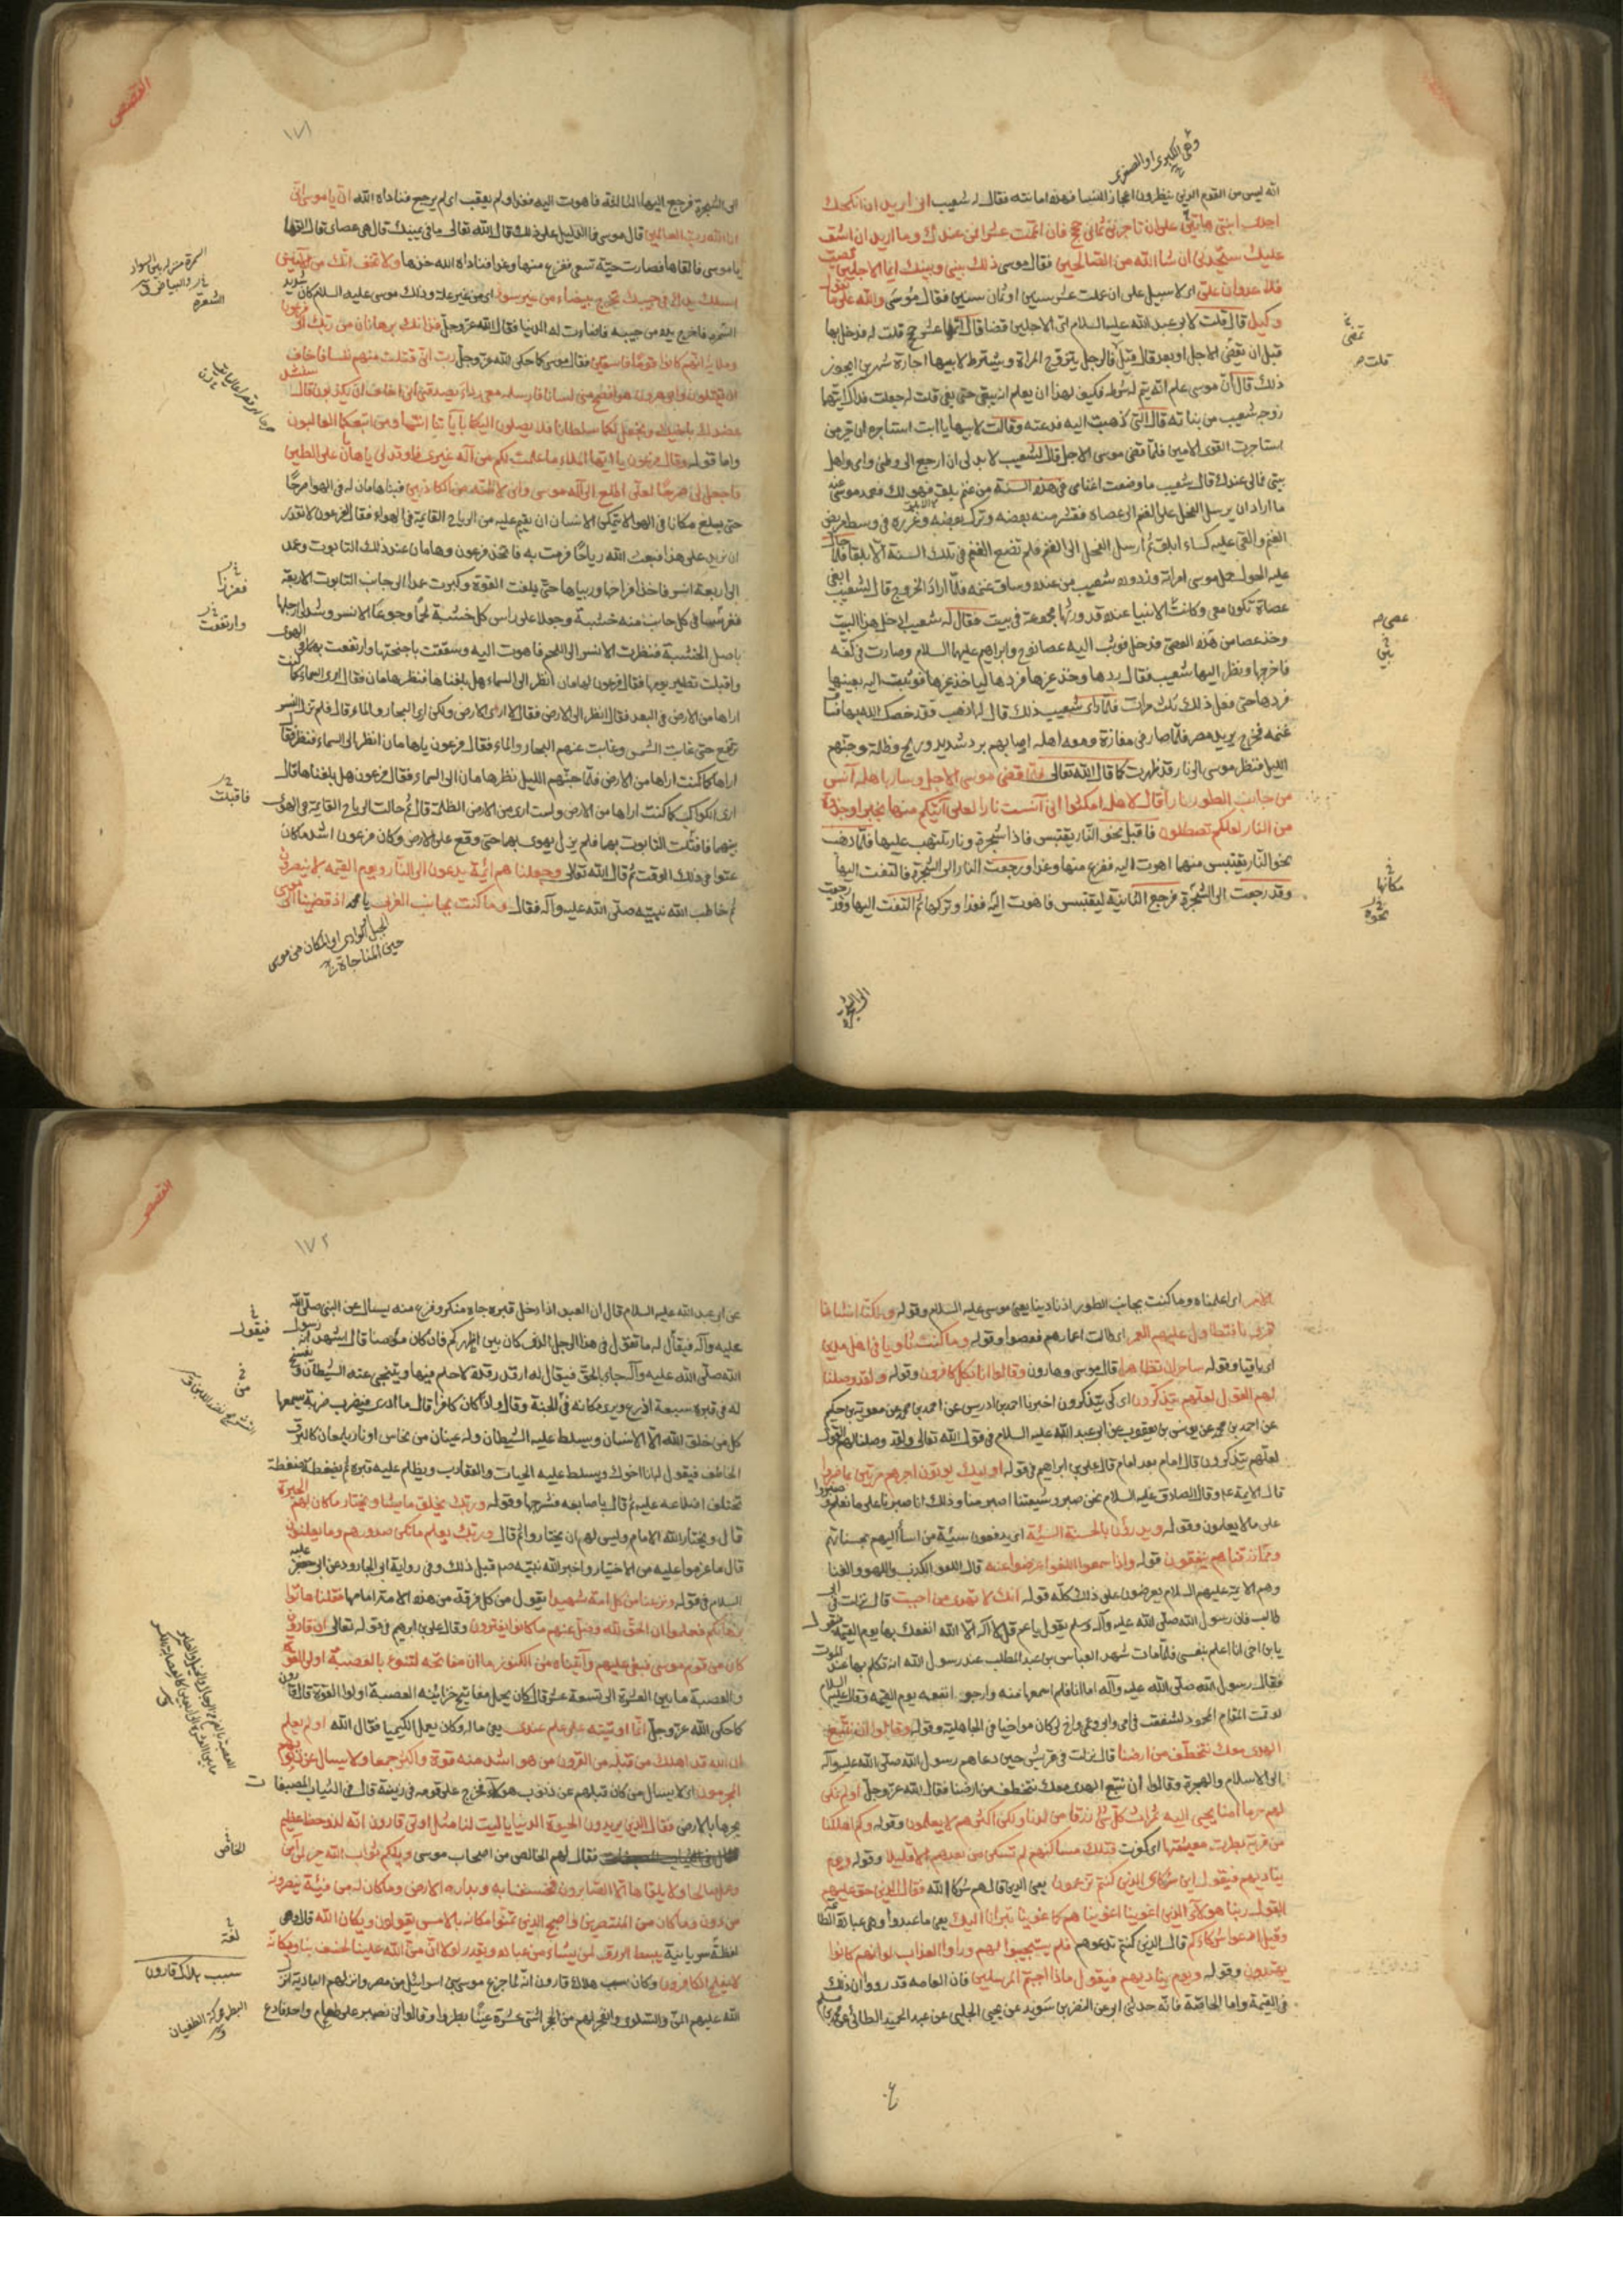 وهي الكبرى او الصغرى
انه ليس من القوم الذين ينظرون اعجاز النساء فهذه امانته فقال له شعيب انى اريد ان انكحك
احدى ابنتى هاتين على ان تاجرنى ثمانى حجج فان اتممت عشرا فمن عندك وما اريد ان اشق
عليك ستجدنى ان شاء الله من الصالحين فقال موسى ذلك بينى وبينك ايما الاجلين قضيت
فلا عدوان على اى لا سبيل على ان عملت عشر سنين او ثمان سنين فقال موسى والله على ما نقول
وكيل قال قلت لابى عبد الله عليه السلام اى الاجلين قضا قال اتمها عشر حجج قلت له فدخل بها
قبل ان يقضى الاجل او بعد قال قبل قال فالرجل يتزوج المراة ويشترط لابيها اجارة شهرين ايجوز
ذلك قال ان موسى علم انه يتم له شرطه فكيف لهذا ان يعلم انه يبقى حتى يفى قلت له جعلت فداك ايتها
زوجه شعيب من بناته قال التى ذهبت اليه فدعته وقالت لابيها يا ابت استاجره ان خير من
استاجرت القوى الامين فلما قضى موسى الاجل قال لشعيب لا بد لى ان ارجع الى وطنى وامى واهل
بيتى فمالى عندك قال شعيب ما وضعت اغنامى فى هذه السنة من غنم بلق فهو لك فعمد موسى عند
ما اراد ان يرسل الفحل على الغنم الى عصاه فقشر منه بعضه وترك بعضه وغرزه فى وسط مربض
الغنم والقى عليه كساء ابلق ثم ارسل الفحل الى الغنم فلم تضع الغنم فى تلك السنة الا بلقا فلما حال
عليه الحول حمل موسى امراته وزوده شعيب من عنده وساق غنمه فلما اراد الخروج قال لشعيب ابغى
عصاة تكون معى وكانت عصى الانبياء عنده قد ورثها مجموعة فى بيت فقال له شعيب ادخل هذا البيت
وخذ عصا من هذه العصى فدخل فوثب اليه عصا نوح وابراهيم عليهما السلام وصارت فى كفه
فاخرجها ونظر اليها شعيب فقال ردها وخذ غيرها فردها لياخذ غيرها فوثبت اليه بعينها
فردها حتى فعل ذلك ثلث مرات فلما راى شعيب ذلك قال له اذهب فقد خصك الله بها فساق
غنمه فخرج يريد مصر فلما صار فى مفازة ومعه اهله اصابهم برد شديد وريح وظلمة وجنهم
الليل فنظر موسى الى نار قد ظهرت كما قال الله تعالى فلما قضى موسى الاجل وسار باهله آنس
من جانب الطور نارا قال لاهله امكثوا انى آنست نارا لعلى آتيكم منها بخبر او جذوة
من النار لعلكم تصطلون فاقبل نحو النار يقتبس فاذا شجرة ونار تلتهب عليها فلما ذهب
نحو النار يقتبس منها اهوت اليه ففزع منها وعدا ورجعت النار الى الشجرة فالتفت اليها
وقد رجعت الى الشجرة فرجع الثانية ليقتبس فاهوت اليه فعدا وتركها ثم التفت اليها وقد رجعت
تقضى
قلت
عصى
بين
مكانها
نحوه
الى الشجرة
القصص
١٧١
الى الشجرة فرجع اليها الثالثة فاهوت اليه فعدا ولم يعقب اى لم يرجع فناداه الله ان يا موسى انى
انا الله رب العالمين قال موسى فما الدليل على ذلك قال الله تعالى ما فى يمينك قال هى عصاى قال القها
يا موسى فالقاها فصارت حية تسعى ففزع منها وعدا فناداه الله خذها ولا تخف انك من الآمنين
اسلك يدك فى جيبك تخرج بيضاء من غير سوء اى من غير علة وذلك ان موسى عليه السلام كان شديد
السمرة فاخرج يده من جيبه فاضاءت له الدنيا فقال الله عز وجل فذانك برهانان من ربك الى فرعون
وملائه انهم كانوا قوما فاسقين فقال موسى كما حكى الله عز وجل رب انى قتلت منهم نفسا فاخاف
ان يقتلون واخى هرون هو افصح منى لسانا فارسله معى ردءا يصدقنى انى اخاف ان يكذبون قال سنشد
عضدك باخيك ونجعل لكما سلطانا فلا يصلون اليكما بآياتنا انتما ومن اتبعكما الغالبون
واما قوله وقال فرعون يا ايها الملاء ما علمت لكم من آله غيرى فاوقد لى يا هامان على الطين
فاجعل لى صرحا لعلى اطلع الى آله موسى وانى لاظنه من الكاذبين فبنا هامان له فى الهوا صرحا
حتى بلغ مكانا فى الهوا لا يتمكن الانسان ان يقيم عليه من الرياح القائمة فى الهواء فقال لفرعون لا نقدر
ان نزيد على هذا فبعث الله رياحا فرمت به فاتخذ فرعون وهامان عند ذلك التابوت وعمد
الى اربعة انسر فاخذ افراخها ورباها حتى بلغت القوة وكبرت عمدا الى جانب التابوت الاربعة
فغرسا فى كل جانب منه خشبة وجعلا على راس كل خشبة لحما وجوعا الانسر وشد ارجلها
باصل الخشبة فنظرت الانسر الى اللحم فاهوت اليه وسفقت باجنحتها وارتفعت بهما فى الهوى
واقبلت تطير يومها فقال فرعون لهامان انظر الى السماء هل بلغنا ها فنظر هامان فقال ارى السماء كما كنت
اراها من الارض فى البعد فقال انظر الى الارض فقال لا ارى الارض ولكن ارى البحار والماء قال فلم تزل النسر
ترتفع حتى غابت الشمس وغابت عنهم البحار والماء فقال فرعون يا هامان انظر الى السماء فنظر فقال
اراها كما كنت اراها من الارض فلما جنهم الليل نظر هامان الى السماء فقال فرعون هل بلغناها قال
ارى الكواكب كما كنت اراها من الارض ولست ارى من الارض الا الظلمة قال ثم حالت الرياح القائمة فى الهوى
بينهما فاقبلت التابوت بهما فلم يزل يهوى بهما حتى وقع على الارض وكان فرعون اشد ما كان
عتوا فى ذلك الوقت ثم قال الله تعالى وجعلناهم ائمة يدعون الى النار ويوم القيمة لا ينصرون
ثم خاطب الله نبيه صلى الله عليه وآله فقال وما كنت بجانب الغربى يا محمد اذ قضينا الى موسى
الجبل الوادى او المكان من موسى
حين المناجاة
السمرة منزلة بين السواد
والبياض
الشعرة
فغرزا
وارتفعت
فاقبلت
الامر اى اعلمناه وما كنت بجانب الطور اذ نادينا يعنى موسى عليه السلام وقوله ولكنا انشانا
قرونا فتطاول عليهم العمر اى طالت اعمارهم فعصوا وقوله وما كنت ثاويا فى اهل مدين
اى باقيا وقوله ساحران تظاهرا قال موسى وهارون وقالوا انا بكل كافرون وقوله ولقد وصلنا
لهم القول لعلهم يتذكرون اى كى يتذكرون اخبرنا احمد بن ادريس عن احمد بن محمد عن معوية بن حكيم
عن احمد بن محمد عن يونس بن يعقوب عن ابى عبد الله عليه السلام فى قول الله تعالى ولقد وصلنا لهم القول
لعلهم يتذكرون قال امام بعد امام قال على بن ابراهيم فى قوله اوليك يوتون اجرهم مرتين بما صبروا
قال الايمة ع وقال الصادق عليه السلام نحن صبر وشيعتنا اصبر منا وذلك انا صبرنا على ما نعلم وصبروا
على ما لا يعلمون وقوله ويدرؤن بالحسنة السيئة اى يدفعون سيئة من اساء اليهم بحسناتهم
ومما رزقناهم ينفقون قوله واذا سمعوا اللغو اعرضوا عنه قال اللغو الكذب واللهو والغنا
وهم الايمة عليهم السلام يعرضون عن ذلك كله قوله انك لا تهدى من احببت قال نزلت فى ابى
طالب فان رسول الله صلى الله عليه وآله وسلم يقول يا عم قل لا آله الا الله انفعك بها يوم القيمة فيقول
يا بن اخى انا اعلم بنفسى فلما مات شهد العباس بن عبد المطلب عند رسول الله انه تكلم بها عند الموت
فقال رسول الله صلى الله عليه وآله اما انا فلم اسمعها منه وارجو انفعه يوم القيمة وقال عليه السلام
لو قمت المقام المحمود لشفعت فى امى وابى وعمى واخ لى كان مواخيا فى الجاهلية وقوله وقالوا ان نتبع
الهدى معك نتخطف من ارضنا قال نزلت فى قريش حين دعاهم رسول الله صلى الله عليه وآله
الى الاسلام والهجرة وقالوا ان نتبع الهدى معك نتخطف من ارضنا فقال الله عز وجل اولم نمكن
لهم حرما آمنا يجبى اليه ثمرات كل شئ رزقا من لدنا ولكن اكثرهم لا يعلمون وقوله وكم اهلكنا
من قرية بطرت معيشتها اى كفرت فتلك مساكنهم لم تسكن من بعدهم الا قليلا وقوله ويوم
يناديهم فيقول اين شركاى الذين كنتم تزعمون يعنى الذين قالهم شركاء الله فقال الذين حق عليهم
القول ربنا هؤلاء الذين اغوينا اغوينا هم كما غوينا تبرانا اليك يعنى ما عبدوا وهى عبادة الطاعة
وقيل ادعوا شركاءكم قال الذين كنتم تدعوهم فلم يستجيبوا لهم وراوا العذاب لو انهم كانوا
يهتدون وقوله ويوم يناديهم فيقول ماذا اجبتم المرسلين فان العامه قد رووا ان ذلك
فى القيمة واما الخاصة فانه حدثنى ابى عن النضر بن سويد عن يحيى الحلبى عن عبد الحميد الطائى عن محمد بن مسلم
القصص
١٧٢
عن ابى عبد الله عليه السلام قال ان العبد اذا دخل قبره جاه منكر وفزع منه يسال عن النبى صلى الله
عليه وآله فيقال له ما تقول فى هذا الرجل الذى كان بين اظهركم فان كان مؤمنا قال اشهد انه رسول
الله صلى الله عليه وآله جاء بالحق فيقال له ارقد رقدة لا حلم فيها ويتنحى عنه الشيطان ويفسح
له فى قبره سبعة اذرع ويرى مكانه فى الجنة وقال واذا كان كافرا قال ما ادرى فيضرب ضربة يسمعها
كل من خلق الله الا الانسان ويسلط عليه الشيطان وله عينان من نحاس او نار يلمعان كالبرق
الخاطف فيقول له انا اخوك ويسلط عليه الحيات والعقارب ويظلم عليه قبره ثم يضغطه ضغطة
تختلف اضلاعه عليه ثم قال باصابعه فشرجها وقوله وربك يخلق ما يشاء ويختار ما كان لهم الخيرة
قال ويختار الله الامام وليس لهم ان يختاروا ثم قال وربك يعلم ما تكن صدورهم وما يعلنون
قال ما عزموا عليه من الاختيار واخبر الله نبيه ص قبل ذلك وفى رواية ابى الجارود عن ابى جعفر عليه
السلام فى قوله ونزعنا من كل امة شهيدا يقول من كل فرقة من هذه الامة امامها فقلنا هاتوا
برهانكم فعلموا ان الحق لله وضل عنهم ما كانوا يفترون وقال على بن ابراهيم فى قوله تعالى ان قارون
كان من قوم موسى فبغى عليهم وآتيناه من الكنوز ما ان مفاتحه لتنوء بالعصبة اولى القوة
والعصبة ما بين العشرة الى تسعة عشر قال كان يحمل مفاتيح خزاينه العصبة اولوا القوة قال قارون
كما حكى الله عز وجل انما اوتيته على علم عندى يعنى ماله وكان يعمل الكيميا فقال الله اولم يعلم
ان الله قد اهلك من قبله من القرون من هو اشد منه قوة واكثر جمعا ولا يسال عن ذنوبهم
المجرمون اى لا يسال من كان قبلهم عن ذنوب هؤلاء فخرج على قومه فى زينته قال فى الثياب المصبغات
يجرها بالارض فقال الذين يريدون الحيوة الدنيا يا ليت لنا مثل اوتى قارون انه لذو حظ عظيم
فقال لهم الخالص من اصحاب موسى ويلكم ثواب الله خير لمن آمن
وعمل صالحا ولا يلقاها الا الصابرون فخسفنا به وبداره الارض وما كان له من فئة ينصرونه
من دون وما كان من المنتصرين واصبح الذين تمنوا مكانه بالامس يقولون ويكان الله قال وهى
لفظة سريانية يبسط الرزق لمن يشاء من عباده ويقدر لولا ان من الله علينا لخسف بنا ويكانه
لا يفلح الكافرون وكان سبب هلاك قارون انه لما خرج موسى بنى اسرائيل من مصر وانزلهم البادية انزل
الله عليهم المن والسلوى وانفجر لهم من الحجر اثنتى عشرة عينا بطروا وقالوا لن نصبر على طعام واحد فادع
فيقول
من
الخاص
لغة
سبب هلاك قارون